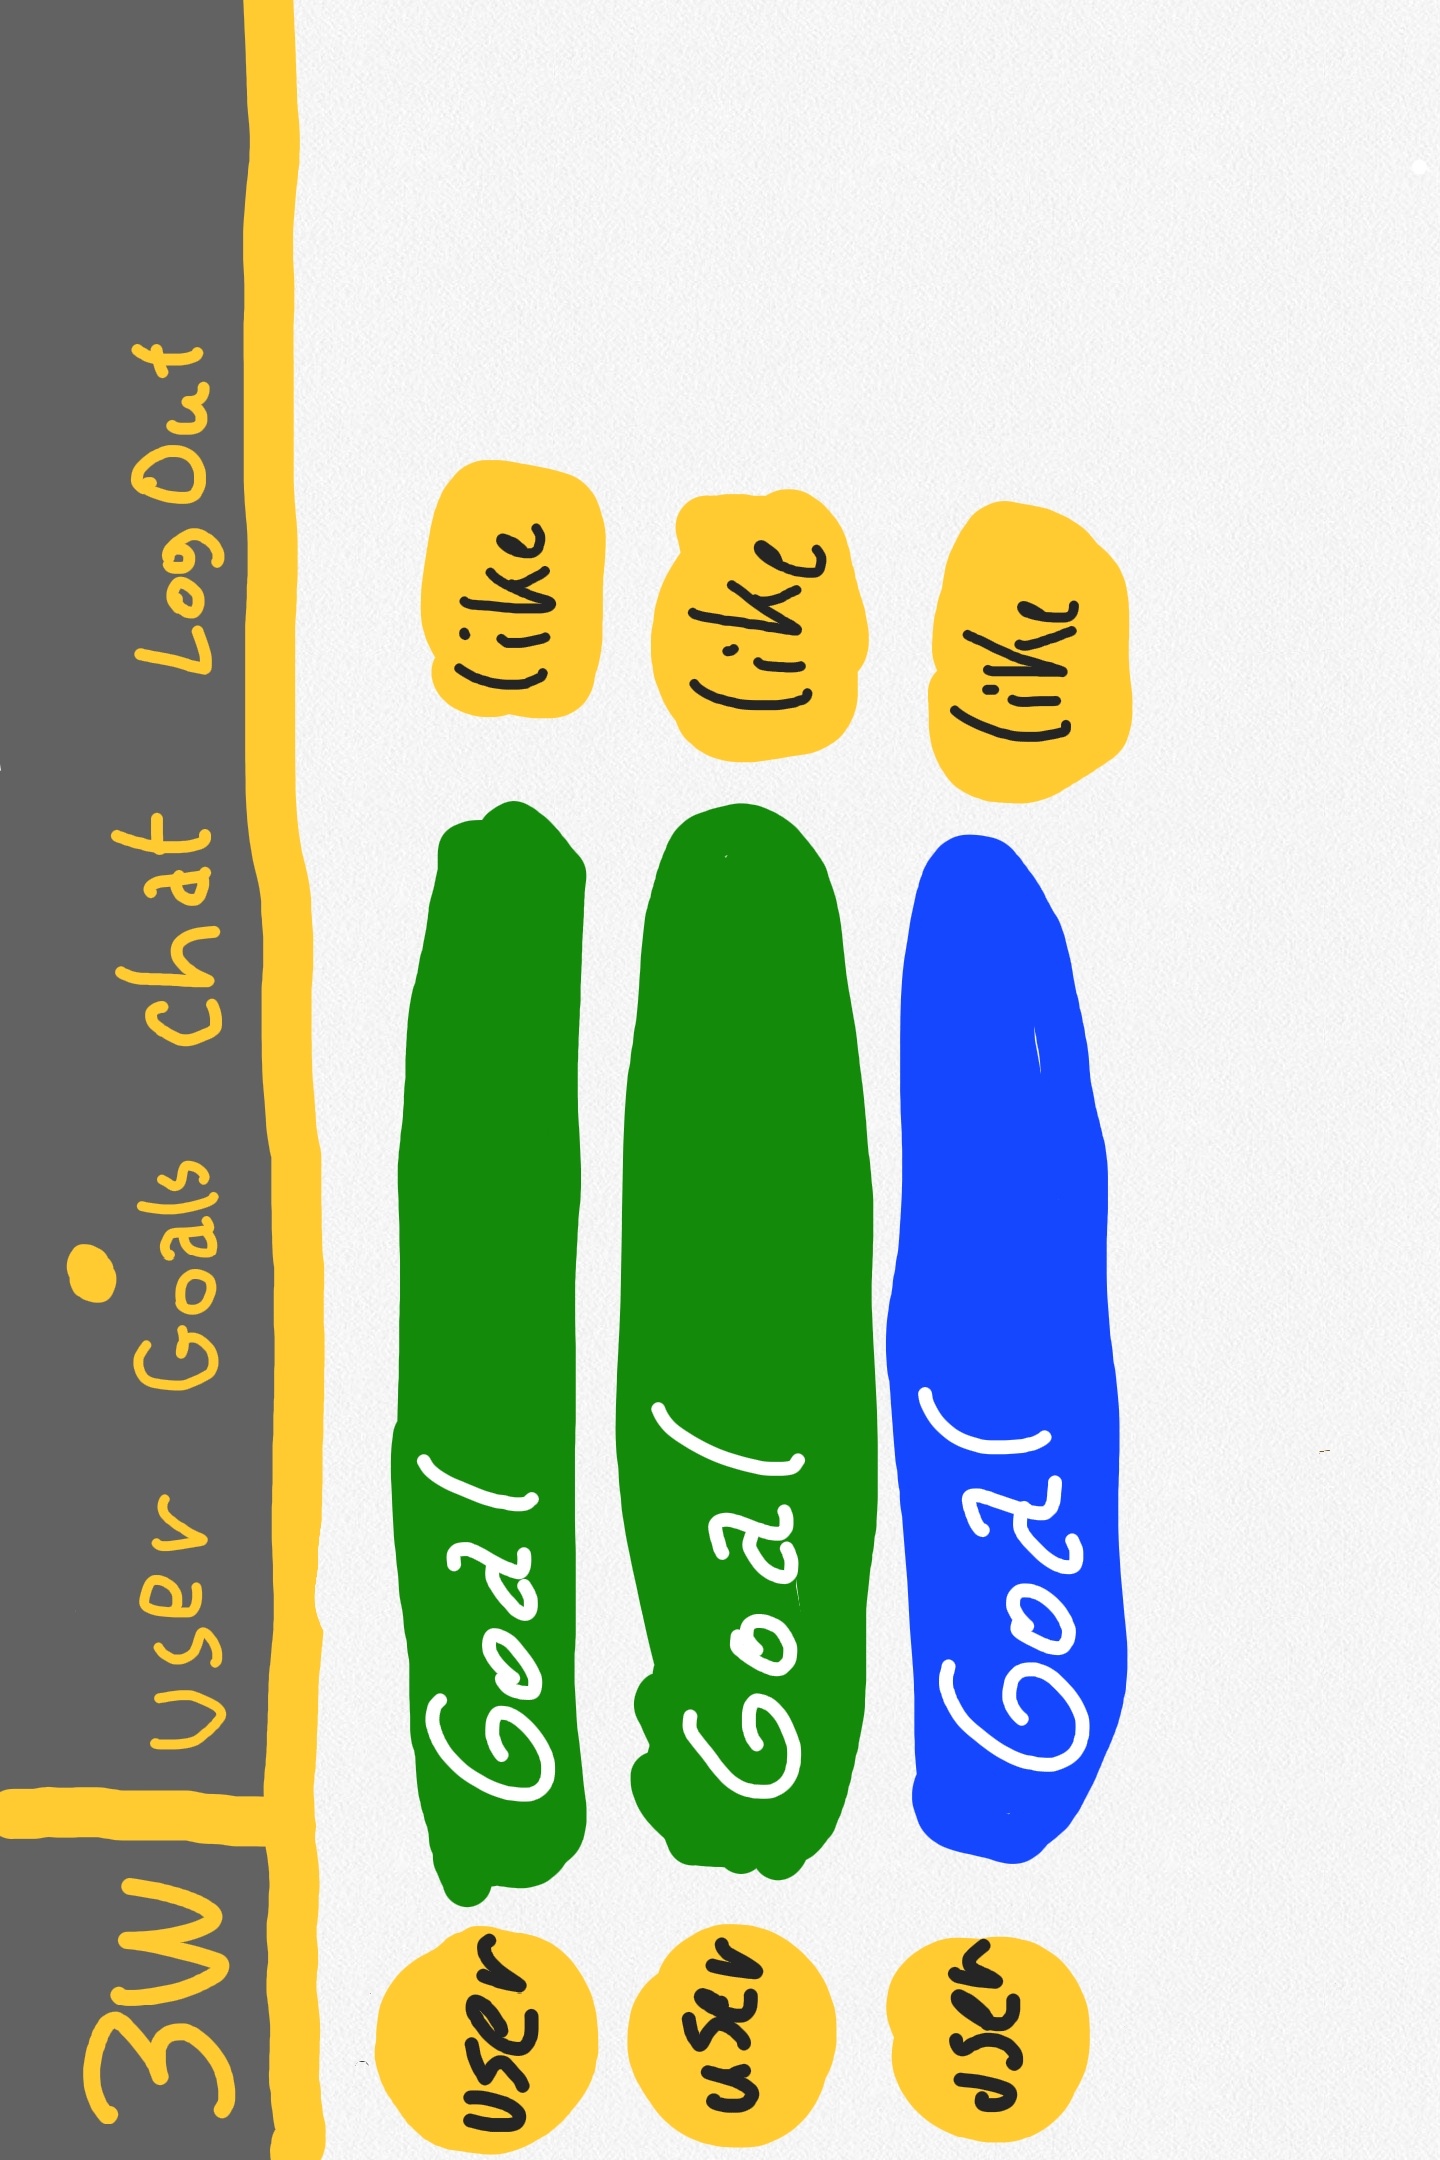 3W User Goals Chat LogOut
user Goal like
user Goal like
user Goal like